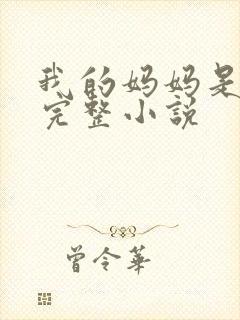 我的妈妈是
完整小说
曾令华